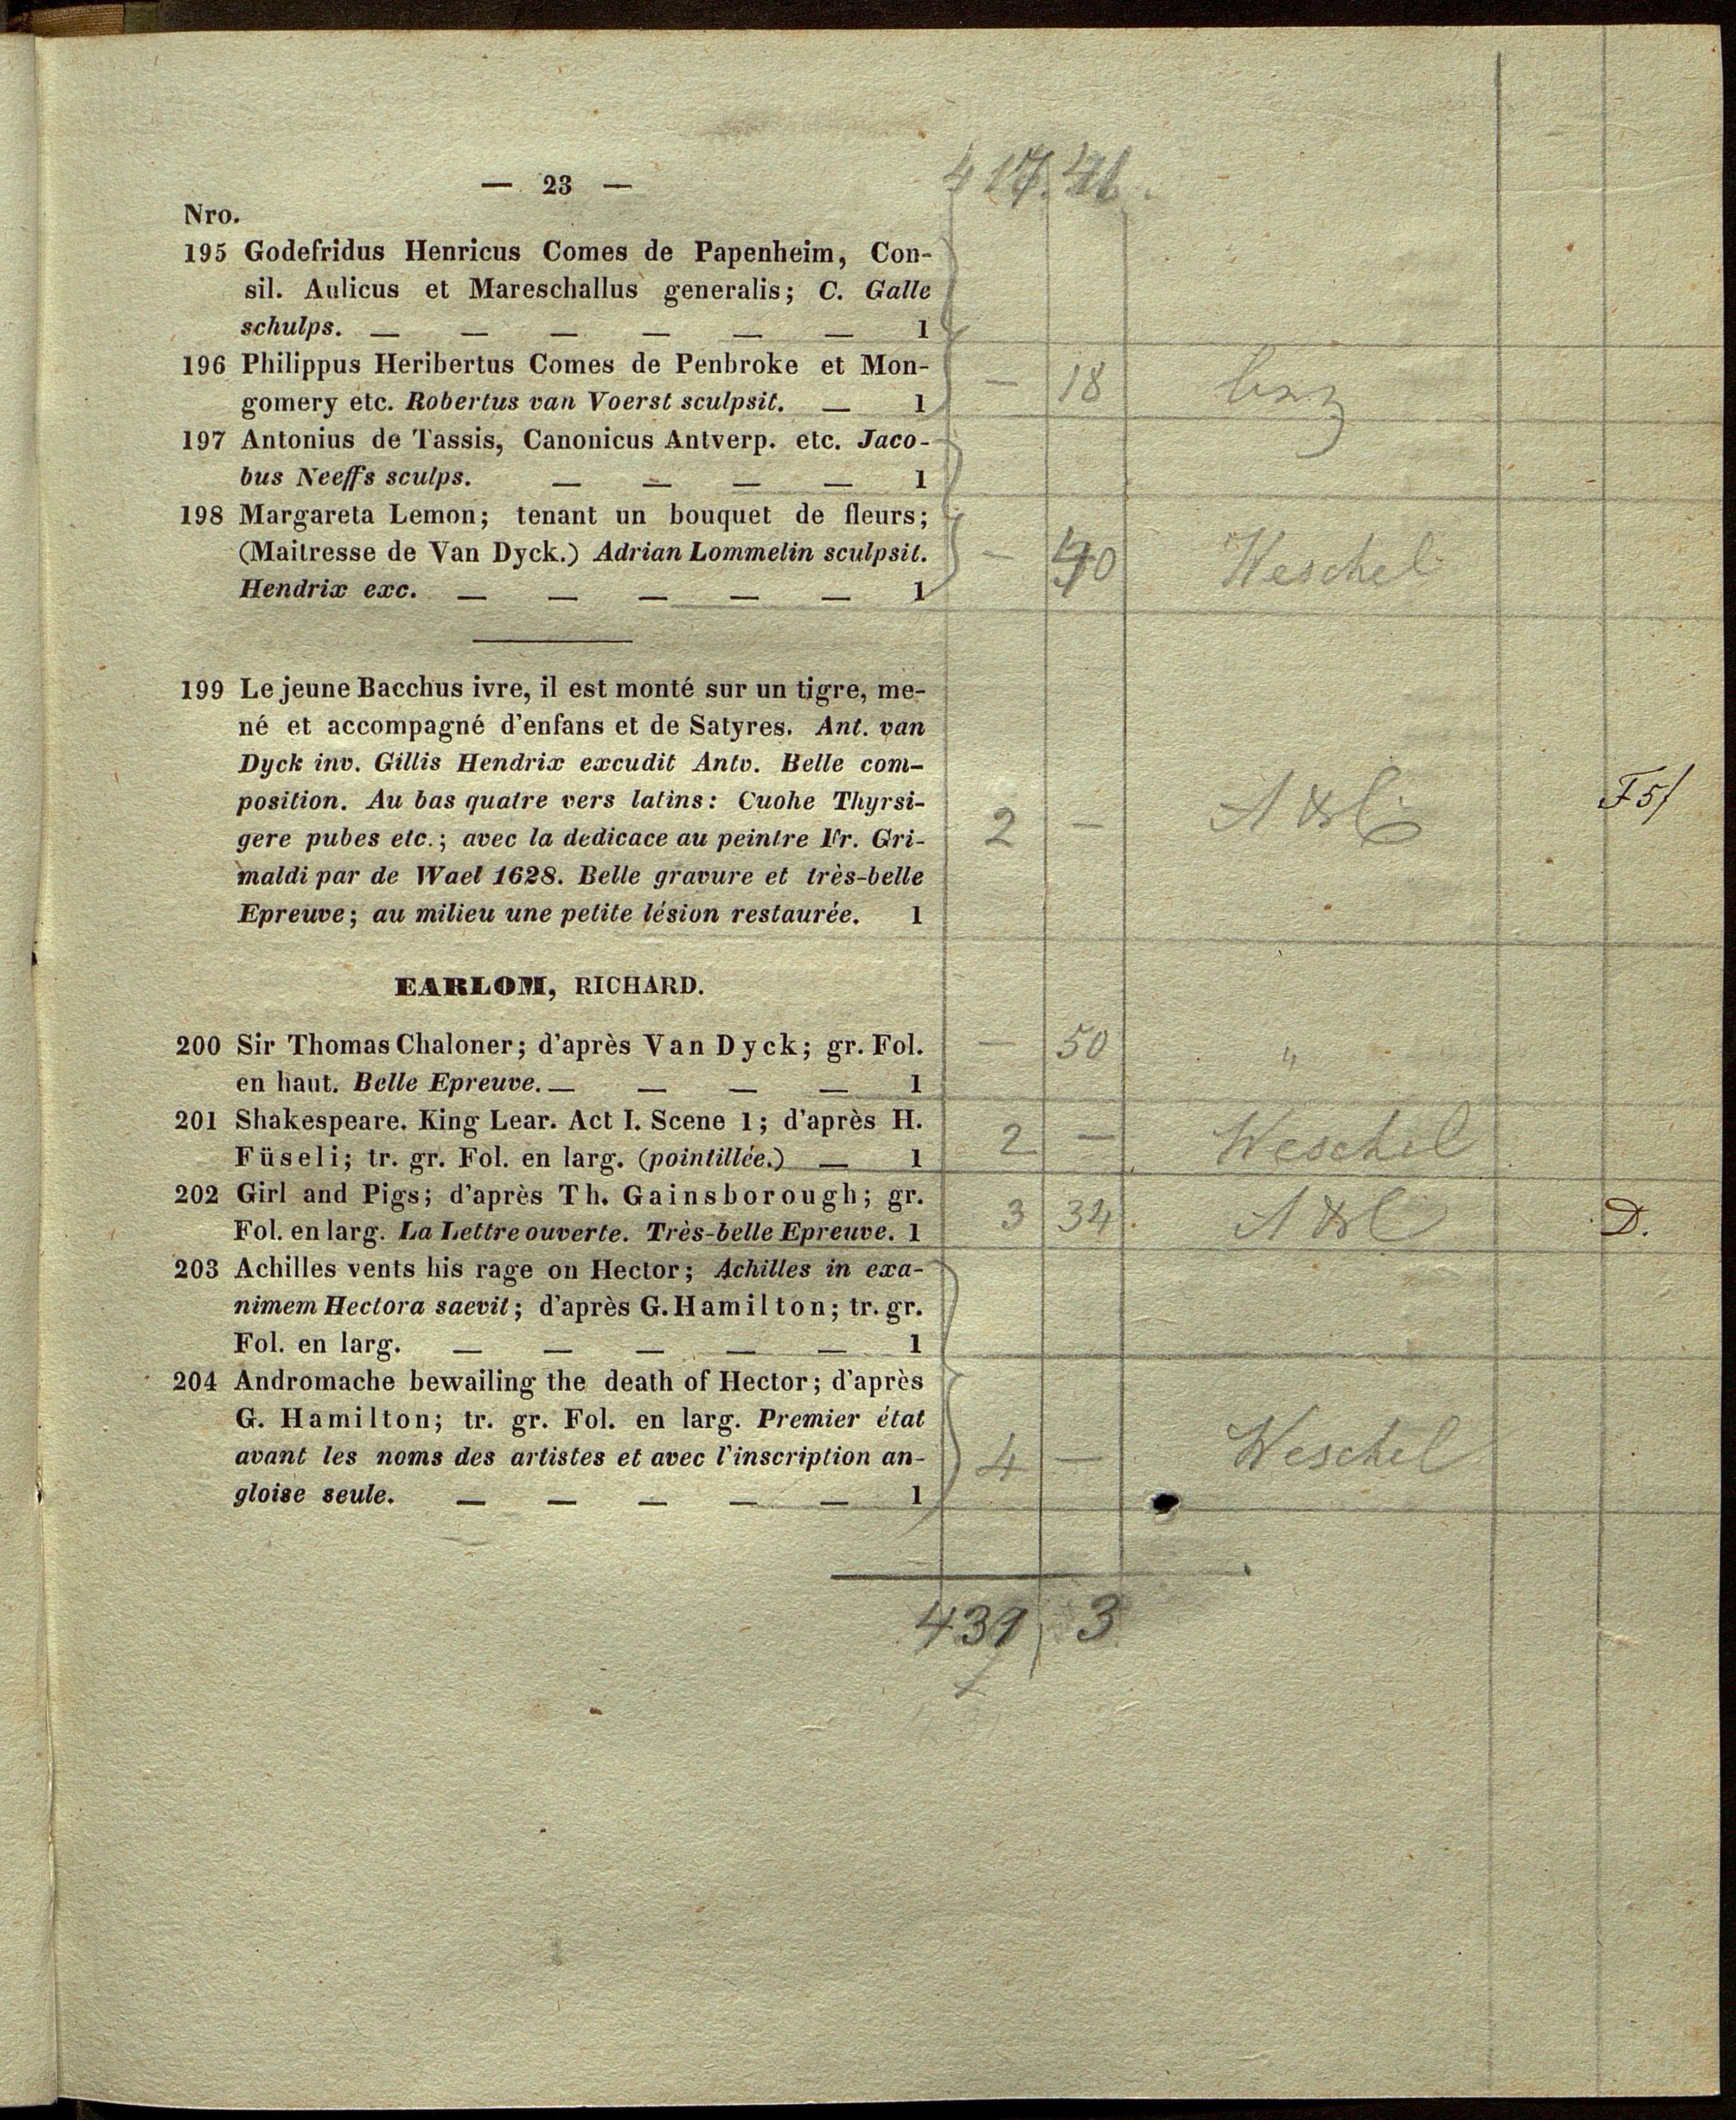 — 23 —
Nro.
195 Godefridus Henricus Comes de Papenheim, Con-
sil. Aulicus et Mareschallus generalis; C. Galle
schulps. — — — — — — 1
196 Philippus Heribertus Comes de Penbroke et Mon-
gomery etc. Robertus van Voerst sculpsit. — 1 — 18
197 Antonius de Tassis, Canonicus Antverp. etc. Jaco-
bus Neeffs sculps. — — — — 1
198 Margareta Lemon; tenant un bouquet de fleurs;
(Maitresse de Van Dyck.) Adrian Lommelin sculpsit. — Weschel
Hendrix exc. — — — — — 1
199 Le jeune Bacchus ivre, il est monté sur un tigre, me-
né et accompagné d'enfans et de Satyres. Ant. van
Dyck inv. Gillis Hendrix excudit Antv. Belle com-
position. Au bas quatre vers latins: Cuohe Thyrsi-
gere pubes etc.; avec la dedicace au peintre Fr. Gri- 2 —
maldi par de Wael 1628. Belle gravure et très-belle
Epreuve; au milieu une petite lésion restaurée. 1
EARLOM, RICHARD.
200 Sir Thomas Chaloner; d'après Van Dyck; gr. Fol. — 50 "
en haut. Belle Epreuve. — — — — 1
201 Shakespeare. King Lear. Act I. Scene 1; d'après H. 2 — Weschel
Füseli; tr. gr. Fol. en larg. (pointillée.) — 1
202 Girl and Pigs; d'après Th. Gainsborough; gr. 3 34 D.
Fol. en larg. La Lettre ouverte. Très-belle Epreuve. 1
203 Achilles vents his rage on Hector; Achilles in exa-
nimem Hectora saevit; d'après G. Hamilton; tr. gr.
Fol. en larg. — — — — — 1
204 Andromache bewailing the death of Hector; d'après
G. Hamilton; tr. gr. Fol. en larg. Premier état
avant les noms des artistes et avec l'inscription an- 4 — Weschel
gloise seule. — — — — — 1
439 3